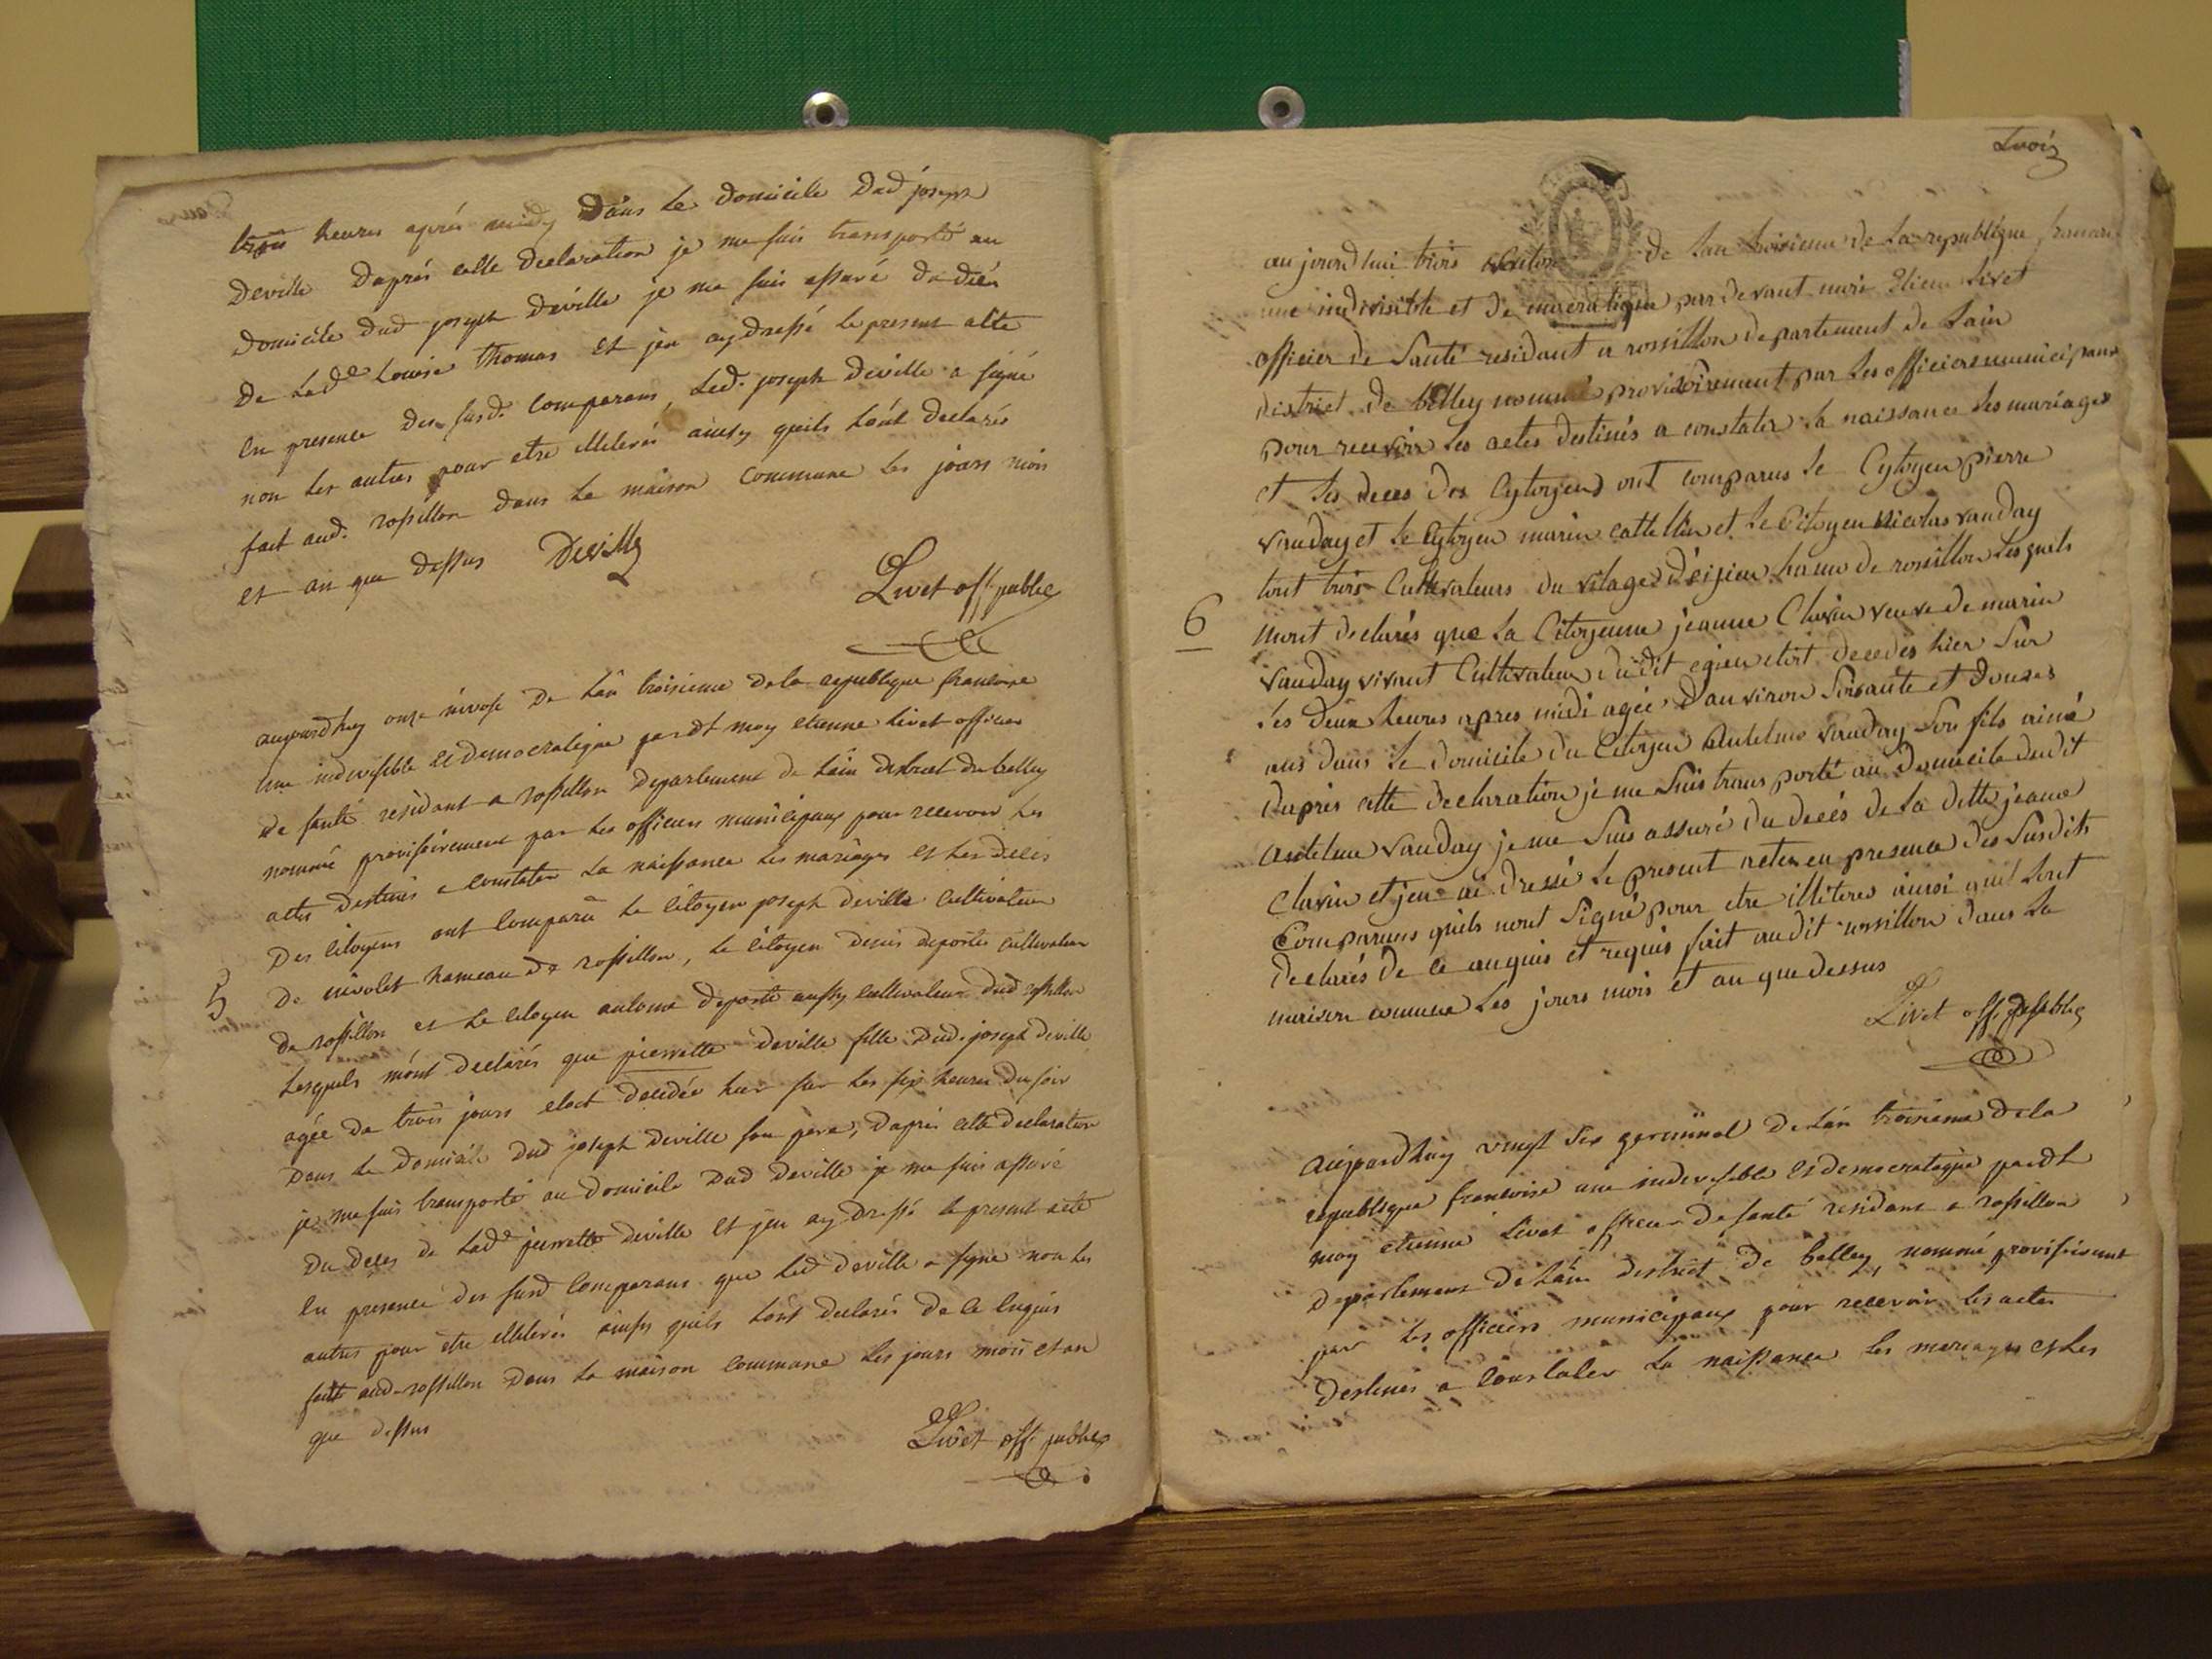 trois heures aprés midy Dans le Domicile Dud joseph
Deville Daprés cette Declaration je me suis transporté au
Domicile dud joseph deville je me suis assuré du décés
De lad.e Louise Thomas et jen ay dressé le present acte
En presence des susd. comparans, led. joseph deville a signé
non les autres pour etre illiterés ainsy quils l'ont declarés
fait aud. rossillon dans la maison commune les jours mois
et an que dessus Deville
Livet off. public
aujourdhuy onze nivose de l'an troisieme de la republique francoise
une indivisible et democratique pardt moy etienne livet officier
de santé residant a rossillon departement de l'ain district de belley
nommé provisoirement par les officiers municipaux pour recevoir les
actes destinés a constater la naissance les mariages et les deces
Des citoyens ont comparu le citoyen joseph deville cultivateur
5
De hameau de rossillon, le citoyen denis deporte cultivateur
de rossillon et le citoyen antoine deporte aussy cultivateur dud rossillon
Lesquels m'ont declarés que pierrette deville fille dud. joseph deville
agée de trois jours etoit decedée hier sur les six heures du soir
Dans le domicile dud joseph deville son pere, d'aprés cette declaration
je me suis transporté au domicile dud deville je me suis assuré
du deces de lad.e pierrette deville et jen ay dressé le present acte
En presence des susd comparans que led deville a signé non les
autres pour etre illiterés ainsy quils l'ont declarés de ce enquis
fait aud. rossillon dans la maison commune les jours mois et an
que dessus
Livet off. public
trois
aujourdhui trois de lan troisieme de la republique francai
une indivisible et de mocratique par devant moi Etiene Livet
officier de Santé residant a rossillon departement de Lain
district de belley nommé provisoirement par les officiers municipaux
pour recevoir les actes destinés a constater la naissance les mariages
et les deces des Cytoyens ont comparus le Cytoyen pierre
vauday et le Cytoyen marin cattellin et le Citoyen Nicolas vauday
tout trois Cultivateurs du vilage d'eijieu hamo de rossillon lesquels
6
mont declarés que la Citoyenne jeanne Clavin veuve de marin
vauday vivant Cultivateur dudit egieu etoit decedes hier sur
les deux heures apres midi agée d'anviron soisante et douzes
ans dans le domicile du Citoyen Antelme vauday son fils ainé
dapris cette declaration je me suis transporté au domicile dudit
antelme vauday je me suis assuré du decés de la ditte jeanne
Clavin et jen ai dressé le present actes en presence des susdits
Comparans quils nont signé pour etre illiteres aussi quil lont
declarés de ce anquis et requis fait audit rossillon dans la
maison comune les jours mois et an que dessus
Livet off. public
aujourdhuy vingt six germinal de l'an troisieme de la
republique francoise une indivisible et democratique pardt
moy etienne livet officier de santé residant a rossillon
departement de l'ain district de belley, nommé provisoirement
par les officiers municipaux pour recevoir les actes
destinés a constater la naissance les mariages et les